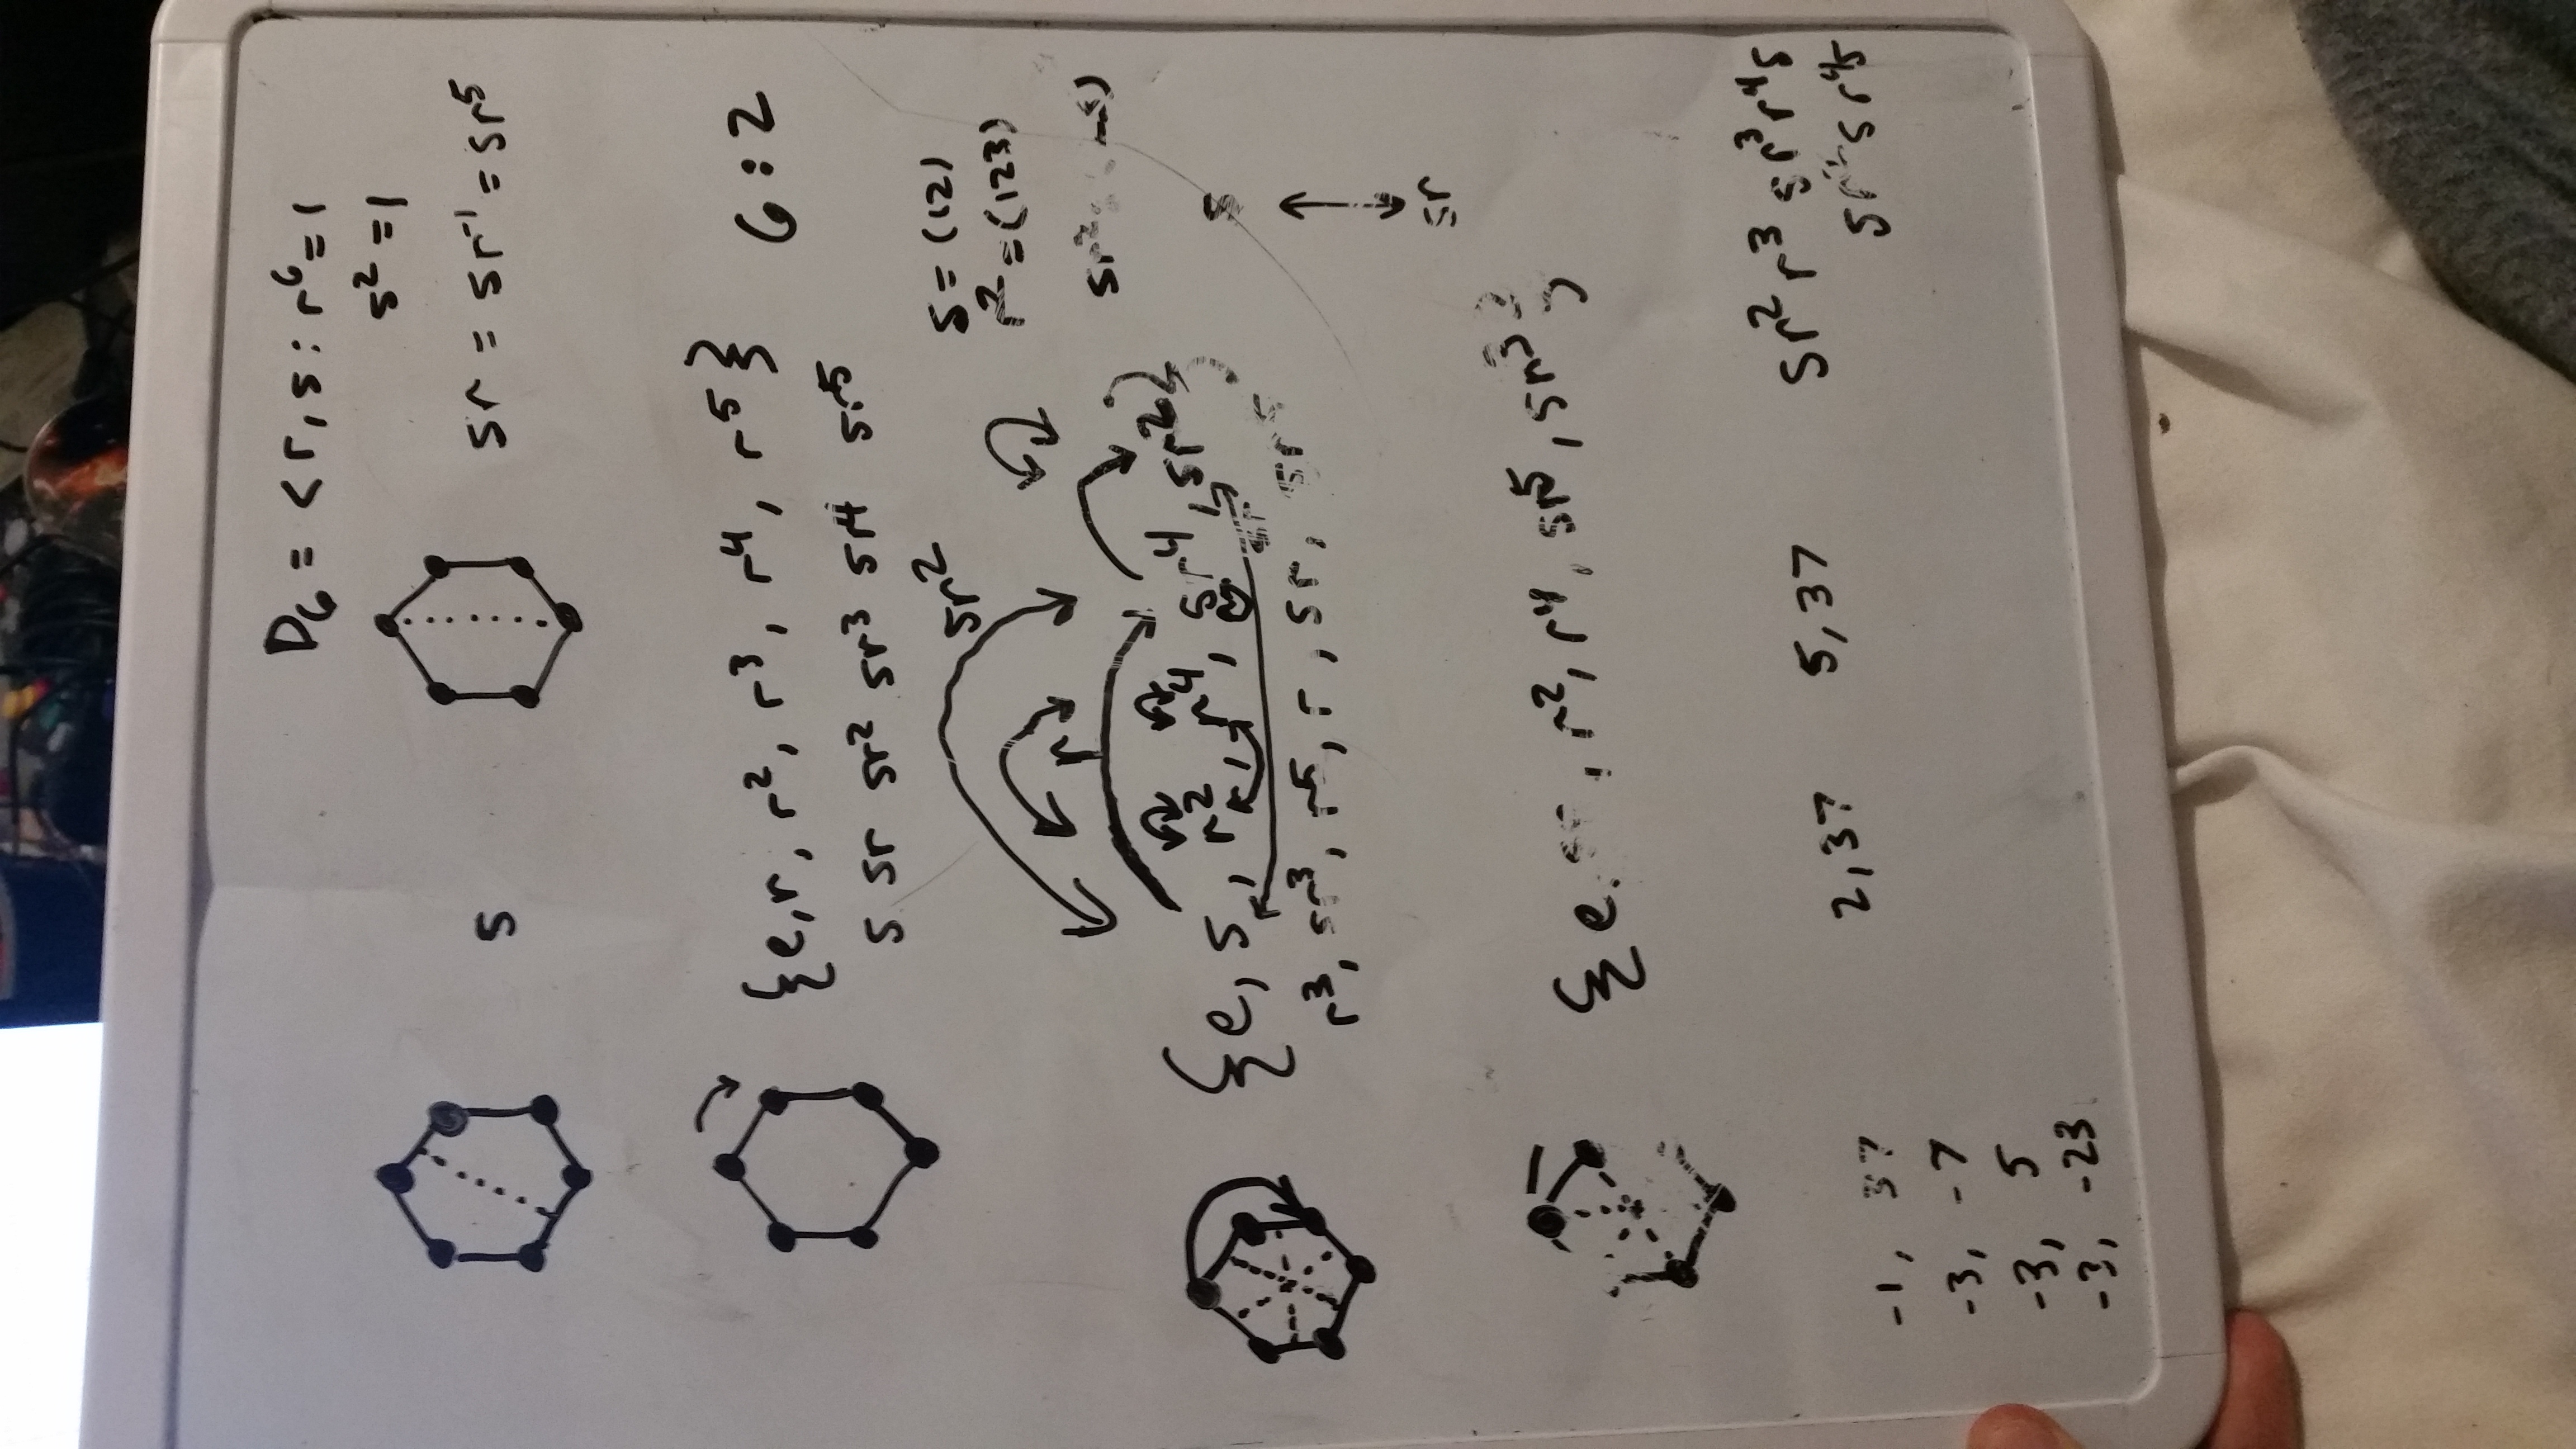 D₆ = < r, s : r⁶ = 1
s² = 1
s
sr = sr⁻¹ = sr⁵
{e, r, r², r³, r⁴, r⁵}
6:2
s sr sr² sr³ sr⁴ sr⁵
sr²
s = (12)
r² = (123)
r
sr²
{e, s, r², r⁴, sr⁴, sr²}
s
r³, sr³, r⁵, r, sr, sr⁵
sr
{e, r², r⁴, sr⁵, sr³}
sr² r³ sr³ r⁴ s
2,37 5,37
sr⁴s
-1, 37
-3, -7
-3, 5
-3, -23